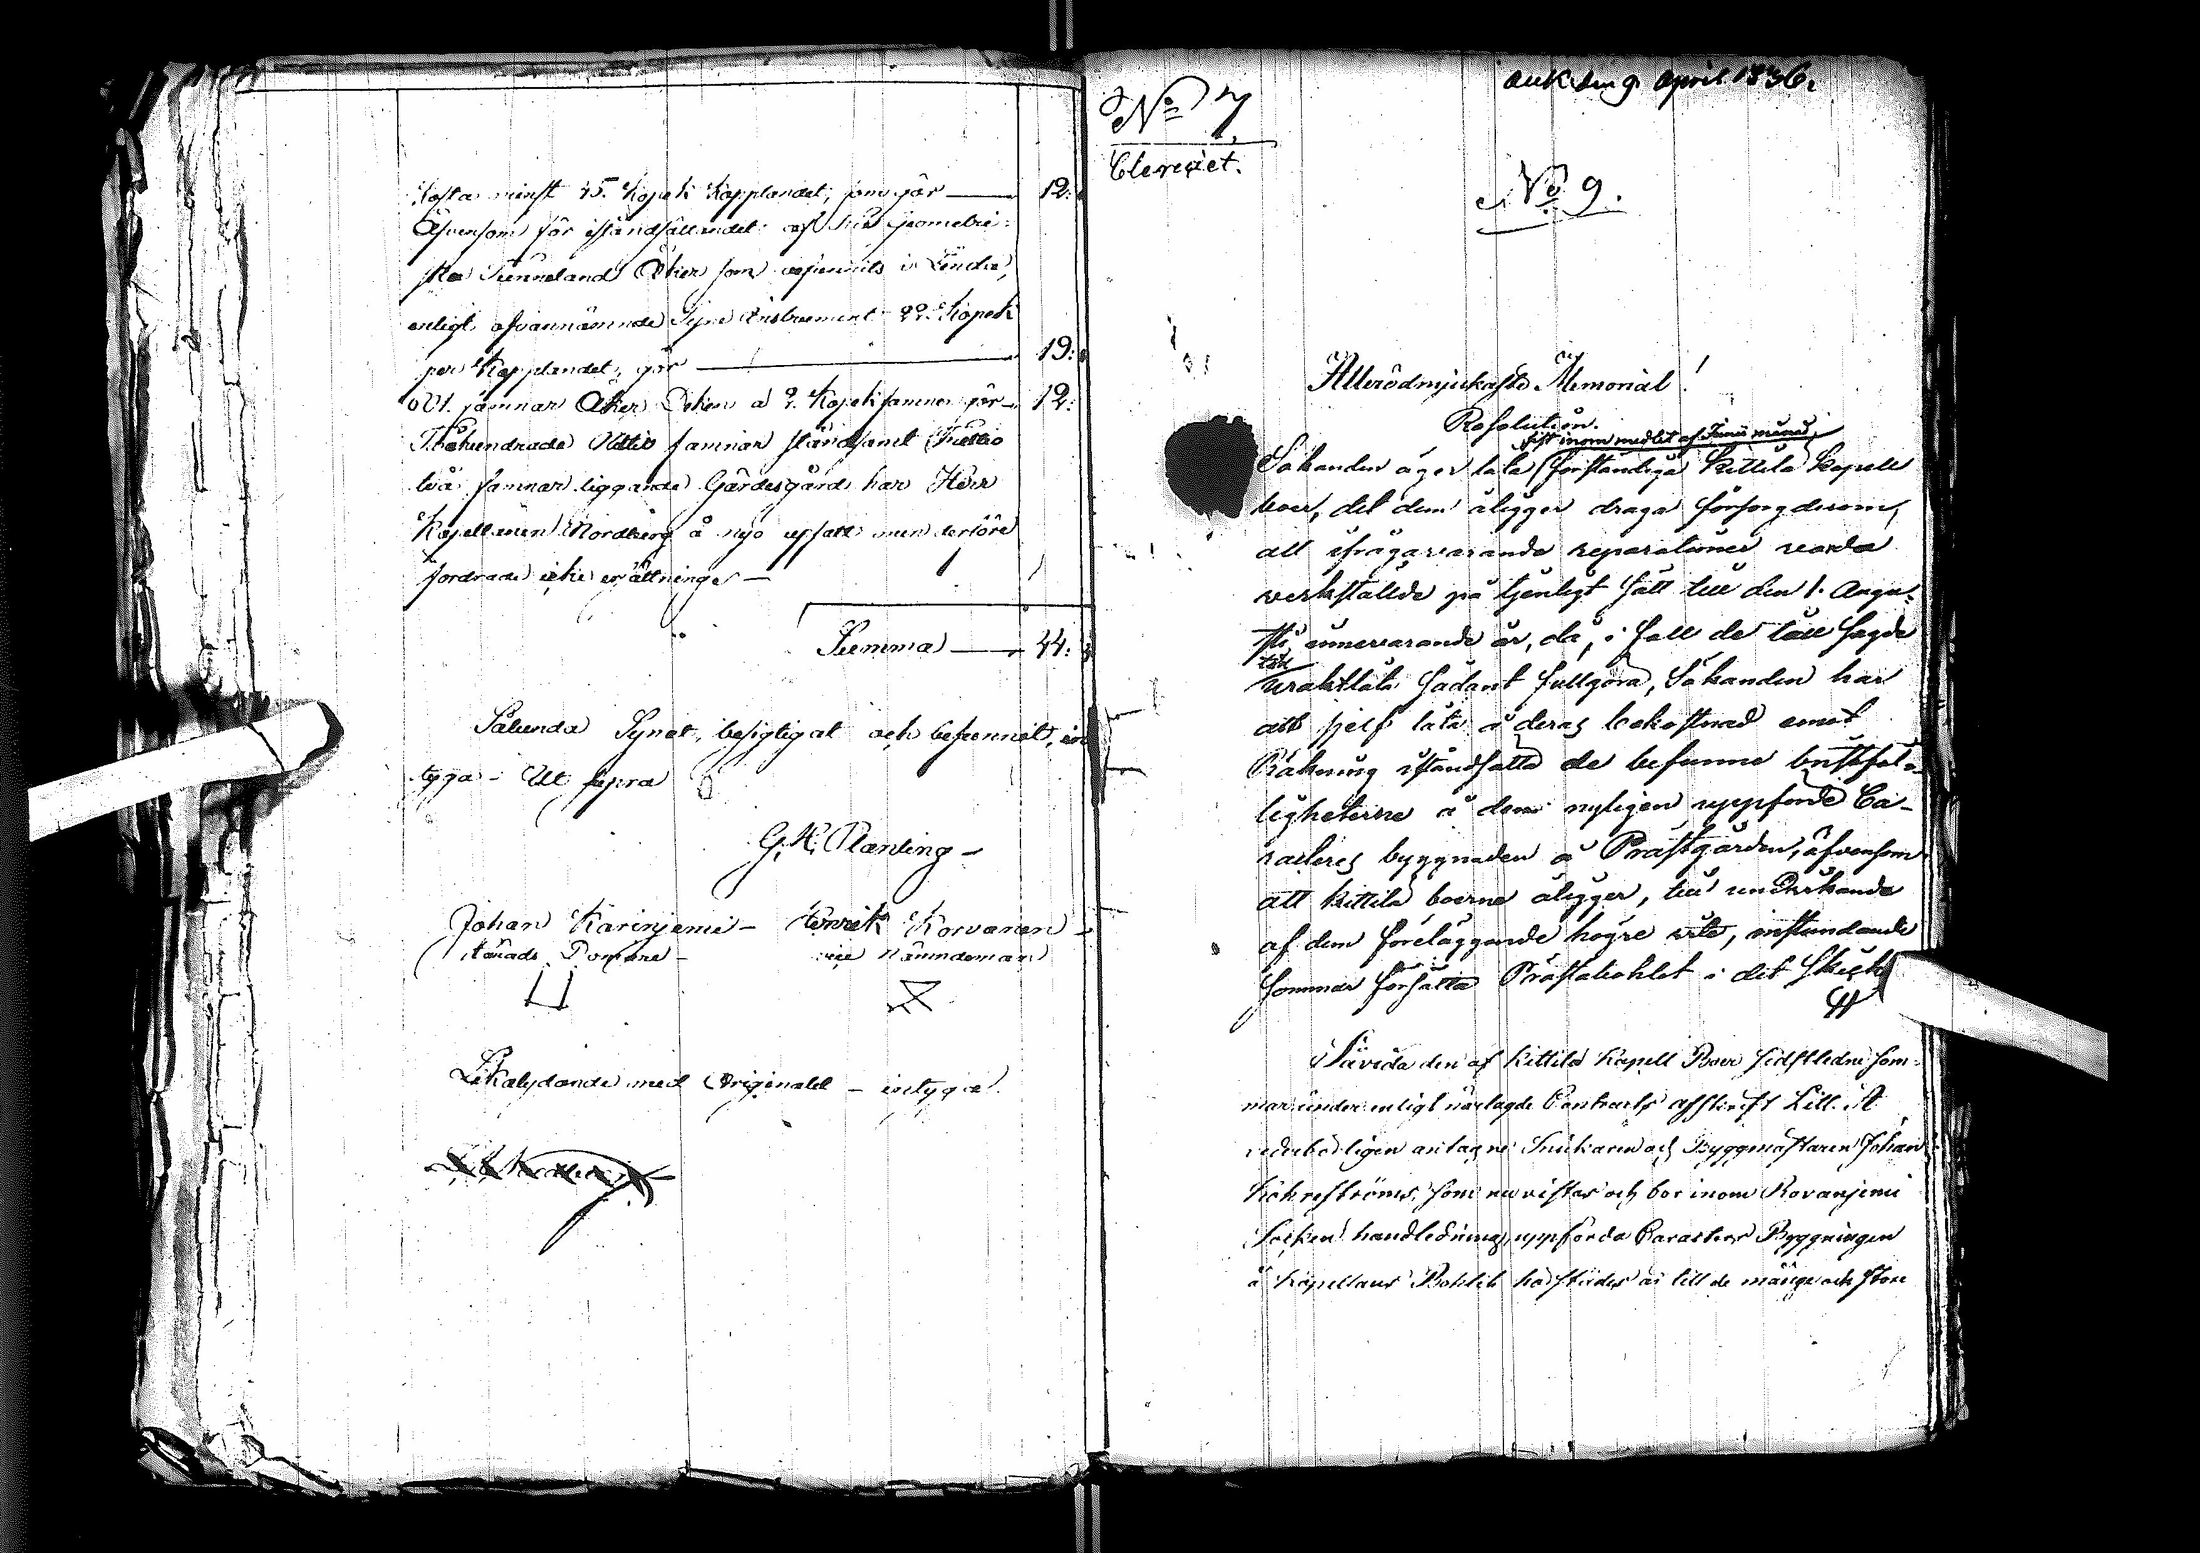 kosta minst 75. Kopek Kapplandet, som gör — 12:
Äfvensom för iståndsättandet af Sine Geometri-
ska Tunneland Åker som befunnits i Linda,
enligt ofvannämnde Syne Instrument 22. Kopek
per Kapplandet, gör — 19:
601. famnar Åker Diken a 2. Kopek famnen gör — 12:
Tvåhundrade Åttio famnar ständsamt Trettio
två famnar liggande Gärdesgård har Herr
Kapellanen Nordberg å nyo upsatt men derföre
fordrade icke ersättning —
Summa — 44:
Sålunda Synat, besigtigat och befunnit, in-
tyga — Ut supra
G. H. Planting —
Johan Karinjemi — Henrik Korvanen —
Härads Domare — Nämndeman
Likalydande med Originalet — intygar
No 7
Clereciet.
ank. den 9 April 1836.
No 9.
Allerödmjukaste Memorial!
Resolution.
sist inom medlet af Junii månad,
Sökanden äger låta förständiga Kittilä Kapell
boer, det dem åligger draga försorg derom,
att ifrågavarande reparationer varda
verkstälde på tjenligt sätt till den 1. Augu-
sti innevarande år, då, i fall de låta sagde
tid
uraktlåta sådant fullgöra, Sökanden har
att sjelf låta å deras bekostnad emot
Räkning iståndsätta de befunne bristfäl-
ligheterne å den nyligen uppförde Ca-
racters byggnaden å Prästgården, äfvensom
att Kittilä boerne åligger, till undvikande
af dem föreläggande högre vite, instundande
sommar försätta Prästabohlet i det skick
Såvida den af Kittilä Kapell Boer sidstledne som-
mar under enligt närlagde Contracts afskrift Litt. A
vederbörligen antagne Snickaren och Byggmästaren Johan
Kökreströms, som nu vistas och bor inom Rovanjemi
Socken handledning uppförda Caracters Byggningen
å Kapellans Bohlet härstädes är till de många och store